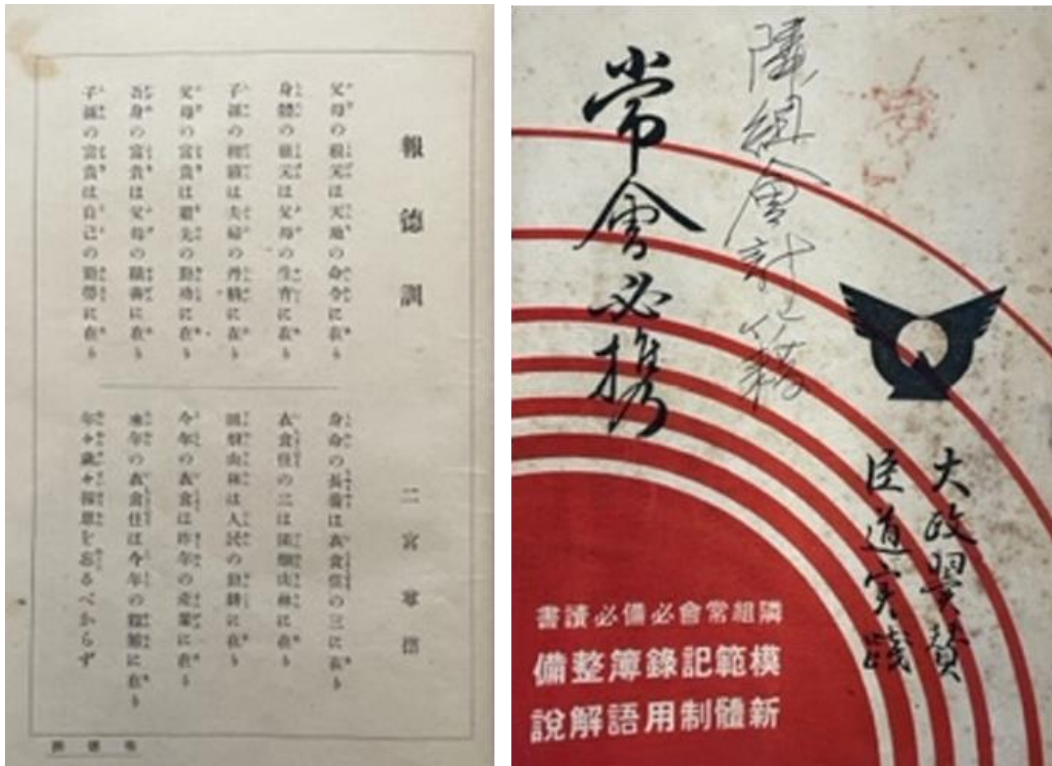 報德訓
二宮尊德
父母の根元は天地の命令に在り
身體の根元は父母の生育に在り
子孫の相續は夫婦の丹精に在り
父母の富貴は祖先の勤功に在り
吾身の富貴は父母の積善に在り
子孫の富貴は自己の勤勞に在り
身命の長養は衣食住の三に在り
衣食住の三は田畑山林に在り
田畑山林は人民の勤耕に在り
今年の衣食は昨年の產業に在り
來年の衣食住は今年の艱難に在り
年々歲々報恩を忘るべからず
隣組會計
常會必携
大政翼賛
臣道実踐
隣組常會必備必讀書
模範記錄簿整備
新體制用語解說